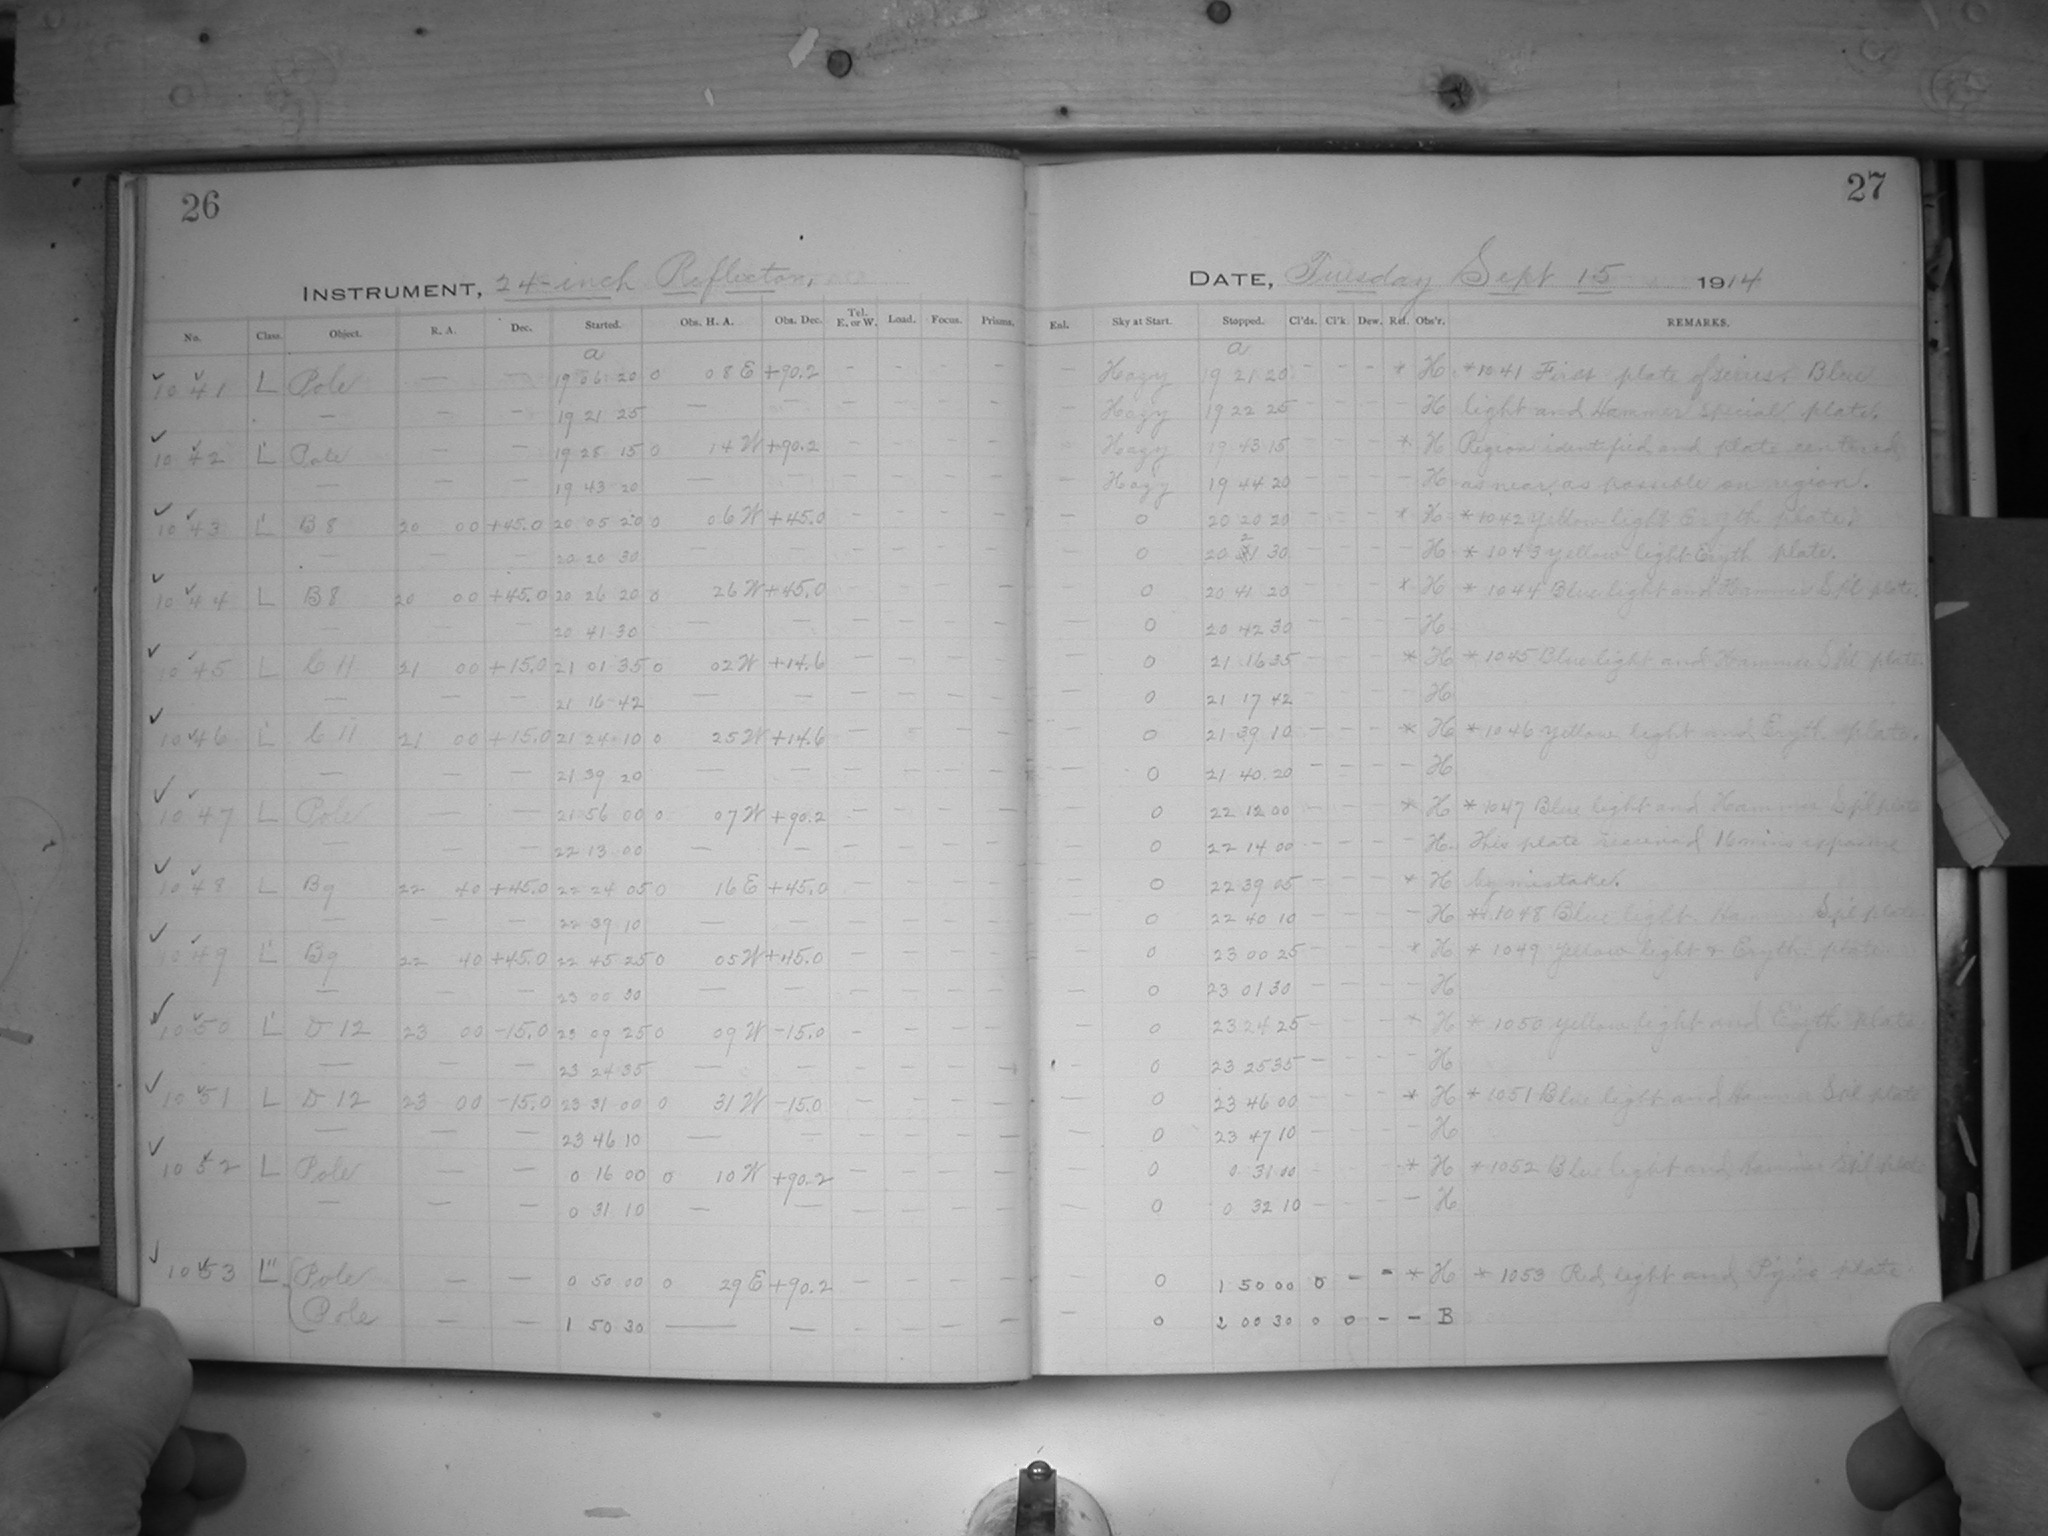 26
INSTRUMENT, 24-inch Reflector,
No. Class. Object. R. A. Dec. Started. Obs. H. A. Obs. Dec. Tel. E. or W. Load. Focus. Prisms.
a
1041 L Pole — — 19 06 20 0 08 E +90.2 — — — —
— — — 19 21 25 — — — — — —
1042 L' Pole — — 19 28 15 0 14 W +90.2 — — — —
— — — 19 43 20 — — — — — —
1043 L' B8 20 00 +45.0 20 05 20 0 06 W +45.0 — — — —
— — — 20 20 30 — — — — — —
1044 L B8 20 00 +45.0 20 26 20 0 26 W +45.0 — — — —
— — — 20 41 30 — — — — — —
1045 L C11 21 00 +15.0 21 01 35 0 02 W +14.6 — — — —
— — — 21 16 42 — — — — — —
1046 L' C11 21 00 +15.0 21 24 10 0 25 W +14.6 — — — —
— — — 21 39 20 — — — — — —
1047 L Pole — — 21 56 00 0 07 W +90.2 — — — —
— — — 22 13 00 — — — — — —
1048 L B9 22 40 +45.0 22 24 05 0 16 E +45.0 — — — —
— — — 22 39 10 — — — — — —
1049 L' B9 22 40 +45.0 22 45 25 0 05 W +45.0 — — — —
— — — 23 00 30 — — — — — —
1050 L' D12 23 00 -15.0 23 09 25 0 09 W -15.0 — — — —
— — — 23 24 35 — — — — — —
1051 L D12 23 00 -15.0 23 31 00 0 31 W -15.0 — — — —
— — — 23 46 10 — — — — — —
1052 L Pole — — 0 16 00 0 10 W +90.2 — — — —
— — — 0 31 10 — — — — — —
1053 L" Pole — — 0 50 00 0 29 E +90.2 — — — —
Pole — — 1 50 30 — — — — — —
27
DATE, Tuesday Sept 15 1914
Enl. Sky at Start. Stopped. Cl'ds. Cl'k. Dew. Ref. Obs'r. REMARKS.
a
— Hazy 19 21 20 — — — * H *1041 First plate of series. Blue
— Hazy 19 22 25 — — — — H light and Hammer special plate.
— Hazy 19 43 15 — — — * H Region identified and plate centered
— Hazy 19 44 20 — — — — H as near as possible on region.
— 0 20 20 20 — — — * H *1042 Yellow light Eryth plate.
— 0 20 21 30 — — — — H *1043 Yellow light Eryth plate.
— 0 20 41 20 — — — * H *1044 Blue light and Hammer Sp'l plate.
— 0 20 42 30 — — — — H
— 0 21 16 35 — — — * H *1045 Blue light and Hammer Sp'l plate.
— 0 21 17 42 — — — — H
— 0 21 39 10 — — — * H *1046 Yellow light and Eryth plate.
— 0 21 40 20 — — — — H
— 0 22 12 00 — — — * H *1047 Blue light and Hammer Sp'l plate
— 0 22 14 00 — — — — H. This plate received 16 mins exposure
— 0 22 39 05 — — — * H by mistake.
— 0 22 40 10 — — — — H *1048 Blue light Hammer Sp'l plate
— 0 23 00 25 — — — * H *1049 Yellow light & Eryth plate
— 0 23 01 30 — — — — H
— 0 23 24 25 — — — * H *1050 Yellow light and Eryth plate
— 0 23 25 35 — — — — H
— 0 23 46 00 — — — * H *1051 Blue light and Hammer Sp'l plate
— 0 23 47 10 — — — — H
— 0 0 31 00 — — — * H *1052 Blue light and Hammer Sp'l plate
— 0 0 32 10 — — — — H
0 1 50 00 0 — — * H *1053 Red light and plate
— 0 2 00 30 0 0 — — B